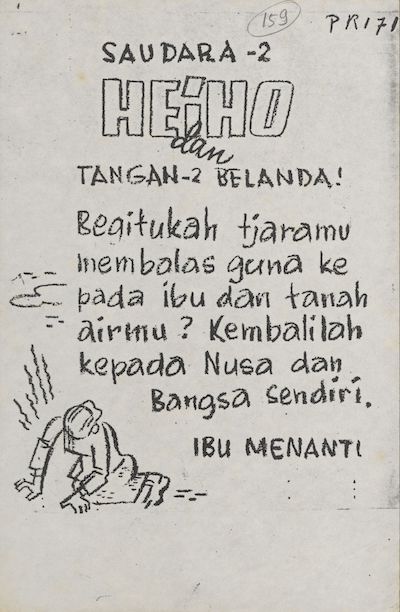 159
PR171
SAUDARA-2
HEiHO
dan
TANGAN-2 BELANDA!
Begitukah tjaramu
membalas guna ke
pada ibu dan tanah
airmu? Kembalilah
kepada Nusa dan
Bangsa sendiri.
IBU MENANTI